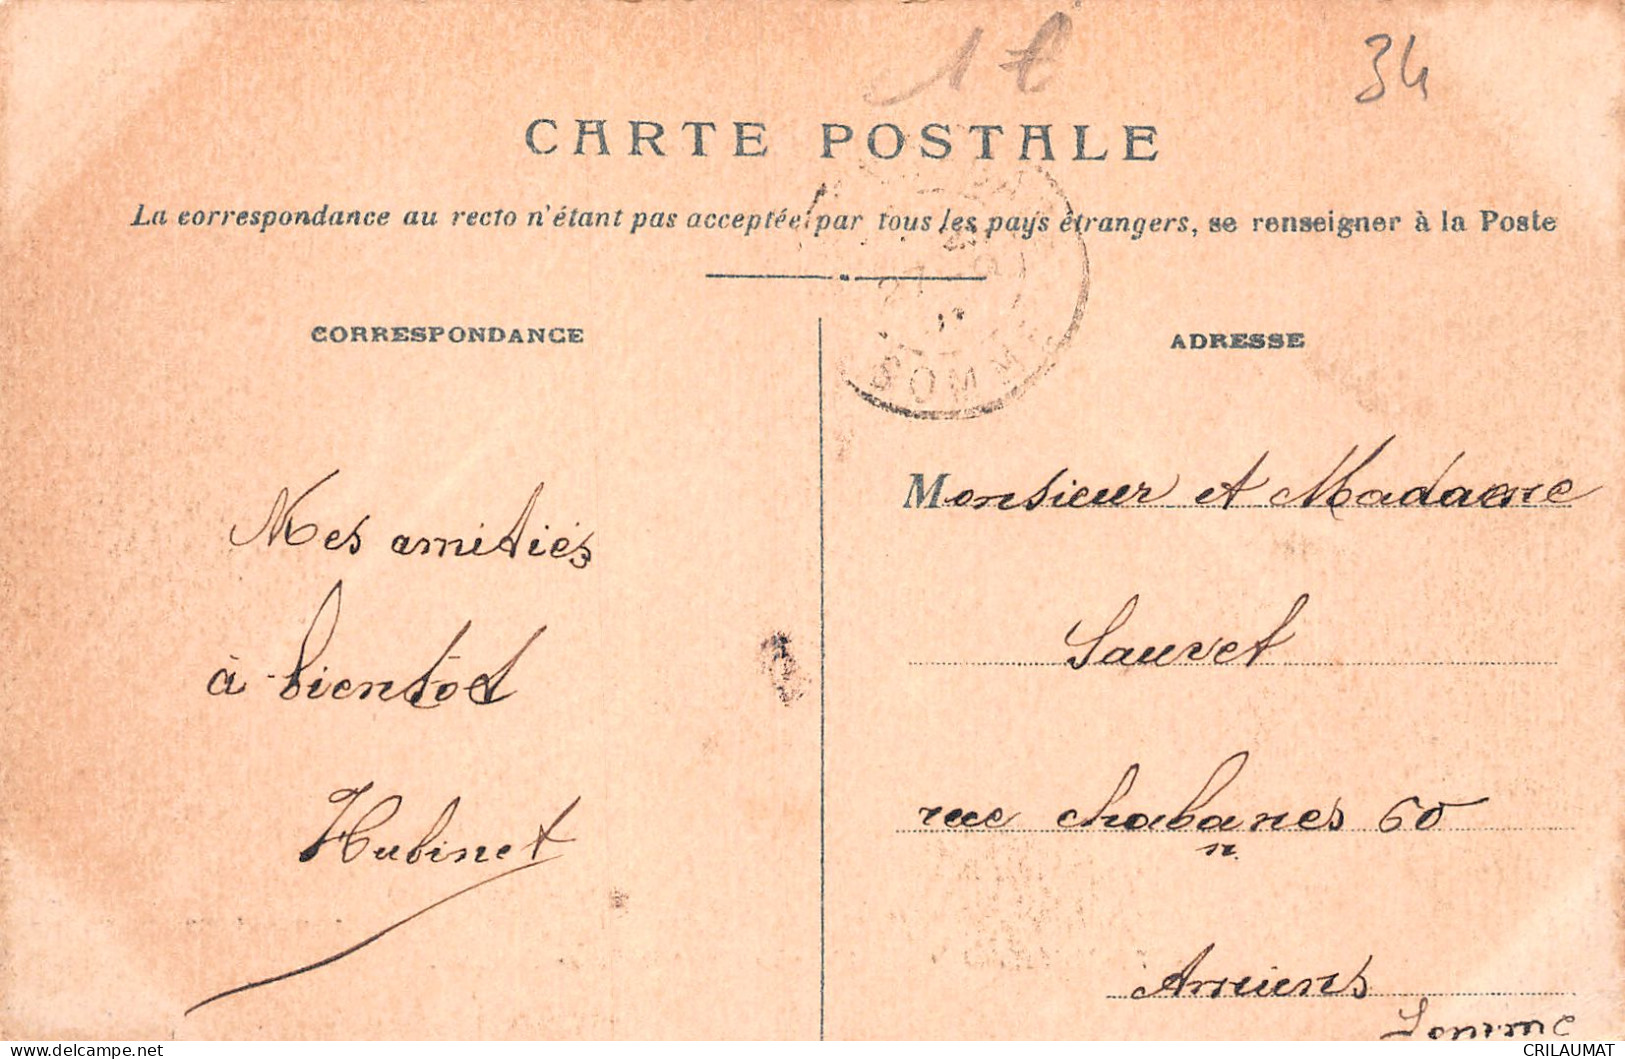 1
34
CARTE POSTALE
La correspondance au recto n'étant pas acceptée par tous les pays étrangers, se renseigner à la Poste
CORRESPONDANCE
ADRESSE
Mes amitiés
à bientôt
Hubinet
Monsieur et Madame
Sauvet
rue chabanes 60
n
Amiens
Somme
CRILAUMAT